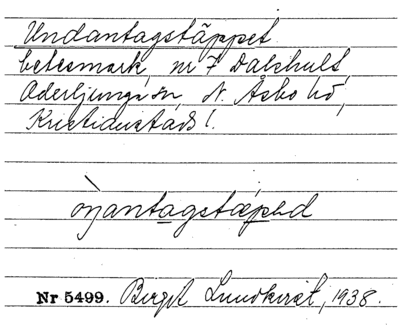 Undantagstäppet
betesmark, nr 7 Dalshult,
Oderljunga sn N. Åsbo hd,
Kristianstads l.
òŋantagstæpəd
Nr 5499. Birgit Lundkvist, 1938.